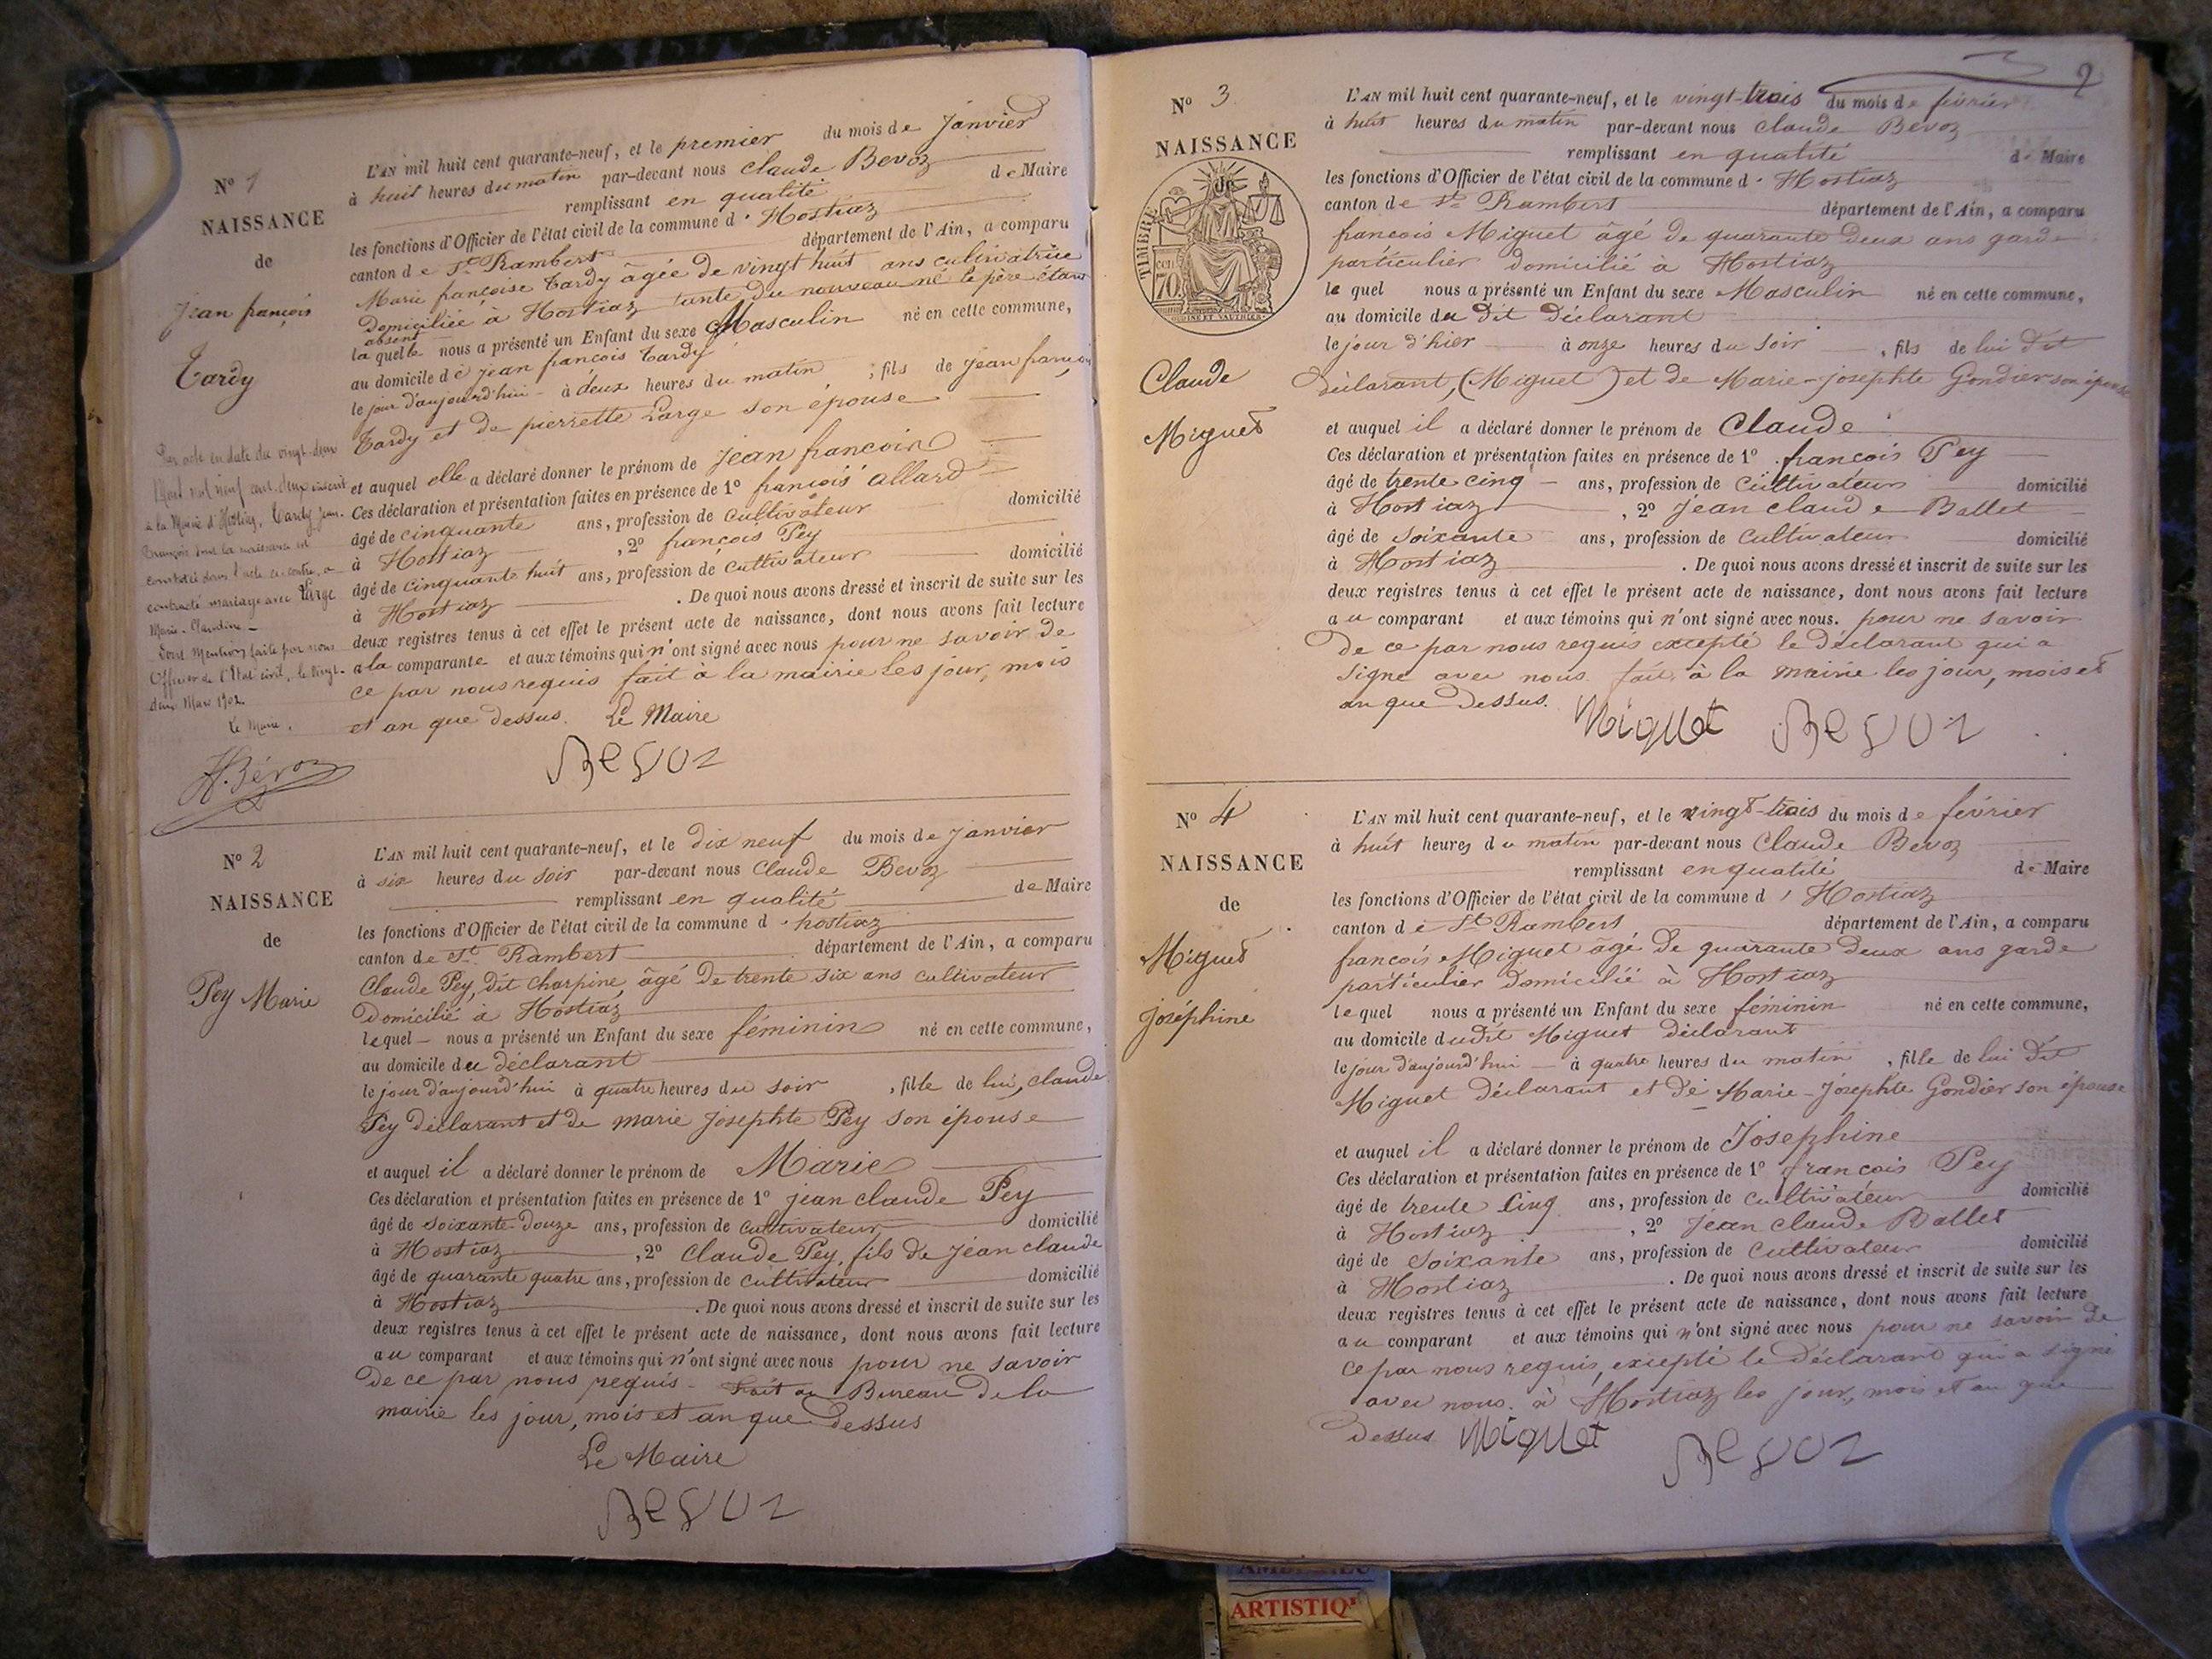 Nº 1
NAISSANCE
de
Jean françois
Tardy
Par acte en date du vingt-deux
Mars mil neuf cent deux inscrit
à la Mairie d'Hostiaz, Tardy Jean-
François dont la naissance est
constatée dans l'acte ci-contre, a
contracté mariage avec Large
Marie-Claudine
Dont Mention faite par nous
Officier de l'Etat civil, le vingt-
deux Mars 1902.
Le Maire,
H. Bévoz
L'AN mil huit cent quarante-neuf, et le premier du mois de Janvier
à huit heures du matin par-devant nous Claude Bevoz
remplissant en qualité de Maire
les fonctions d'Officier de l'état civil de la commune d' Hostiaz
canton de St. Rambert département de l'Ain, a comparu
Marie françoise Tardy âgée de vingt huit ans cultivatrice
Domiciliée à Hostiaz tante du nouveau né le père étant
absent
laquelle nous a présenté un Enfant du sexe Masculin né en cette commune,
au domicile de Jean françois Tardy
le jour d'aujourd'hui à deux heures du matin, fils de Jean françois
Tardy et de pierrette Large son épouse
et auquel elle a déclaré donner le prénom de Jean francois
Ces déclaration et présentation faites en présence de 1º françois allard
âgé de cinquante ans, profession de cultivateur domicilié
à Hostiaz, 2º françois Pey
âgé de cinquante huit ans, profession de cultivateur domicilié
à Hostiaz. De quoi nous avons dressé et inscrit de suite sur les
deux registres tenus à cet effet le présent acte de naissance, dont nous avons fait lecture
a la comparante et aux témoins qui n'ont signé avec nous pour ne savoir de
ce par nous requis fait à la mairie les jour, mois
et an que dessus. Le Maire
Bevoz
Nº 2
NAISSANCE
de
Pey Marie
L'AN mil huit cent quarante-neuf, et le dix neuf du mois de Janvier
à six heures du soir par-devant nous Claude Bevoz
remplissant en qualité de Maire
les fonctions d'Officier de l'état civil de la commune d' hostiaz
canton de St. Rambert département de l'Ain, a comparu
Claude Pey, dit charpine, âgé de trente six ans cultivateur
Domicilié à Hostiaz
lequel nous a présenté un Enfant du sexe féminin né en cette commune,
au domicile du déclarant
le jour d'aujourd'hui à quatre heures du soir, fille de lui, claude
Pey déclarant et de marie Josephte Pey son épouse
et auquel il a déclaré donner le prénom de Marie
Ces déclaration et présentation faites en présence de 1º jean claude Pey
âgé de soixante-douze ans, profession de cultivateur domicilié
à Hostiaz, 2º Claude Pey, fils de Jean claude
âgé de quarante quatre ans, profession de cultivateur domicilié
à Hostiaz. De quoi nous avons dressé et inscrit de suite sur les
deux registres tenus à cet effet le présent acte de naissance, dont nous avons fait lecture
au comparant et aux témoins qui n'ont signé avec nous pour ne savoir
de ce par nous requis - fait au Bureau de la
mairie les jour, mois et an que dessus
Le Maire
Bevoz
2
Nº 3
NAISSANCE
de
TIMBRE
cen 70.
Claude
Miguet
L'AN mil huit cent quarante-neuf, et le vingt-trois du mois de février
à huit heures du matin par-devant nous Claude Bevoz
remplissant en qualité de Maire
les fonctions d'Officier de l'état civil de la commune d' Hostiaz
canton de St. Rambert département de l'Ain, a comparu
françois Miguet âgé de quarante deux ans garde
particulier domicilié à Hostiaz
lequel nous a présenté un Enfant du sexe Masculin né en cette commune,
au domicile du dit déclarant
le jour d'hier à onze heures du soir, fils de lui dit
déclarant, (Miguet) et de Marie-josephte Gondier son épouse
et auquel il a déclaré donner le prénom de Claude
Ces déclaration et présentation faites en présence de 1º françois Pey
âgé de trente cinq ans, profession de cultivateur domicilié
à Hostiaz, 2º Jean claude Ballet
âgé de soixante ans, profession de cultivateur domicilié
à Hostiaz. De quoi nous avons dressé et inscrit de suite sur les
deux registres tenus à cet effet le présent acte de naissance, dont nous avons fait lecture
au comparant et aux témoins qui n'ont signé avec nous. pour ne savoir
de ce par nous requis excepté le déclarant qui a
signé avec nous. fait à la mairie les jour, mois et
an que dessus. Miguet Bevoz
Nº 4
NAISSANCE
de
Miguet
joséphine
L'AN mil huit cent quarante-neuf, et le vingt-trois du mois de février
à huit heures du matin par-devant nous Claude Bevoz
remplissant en qualité de Maire
les fonctions d'Officier de l'état civil de la commune d' Hostiaz
canton de St Rambert département de l'Ain, a comparu
françois Miguet âgé de quarante deux ans garde
particulier domicilié à Hostiaz
lequel nous a présenté un Enfant du sexe féminin né en cette commune,
au domicile dudit Miguet déclarant
le jour d'aujourd'hui à quatre heures du matin, fille de lui dit
Miguet déclarant et de Marie-Josephte Gondier son épouse
et auquel il a déclaré donner le prénom de Josephine
Ces déclaration et présentation faites en présence de 1º françois Pey
âgé de trente cinq ans, profession de cultivateur domicilié
à Hostiaz, 2º Jean claude Ballet
âgé de soixante ans, profession de cultivateur domicilié
à Hostiaz. De quoi nous avons dressé et inscrit de suite sur les
deux registres tenus à cet effet le présent acte de naissance, dont nous avons fait lecture
au comparant et aux témoins qui n'ont signé avec nous pour ne savoir de
ce par nous requis, excepté le déclarant qui a signé
avec nous. à Hostiaz les jour, mois et an que
dessus Miguet Bevoz
ARTISTIQ